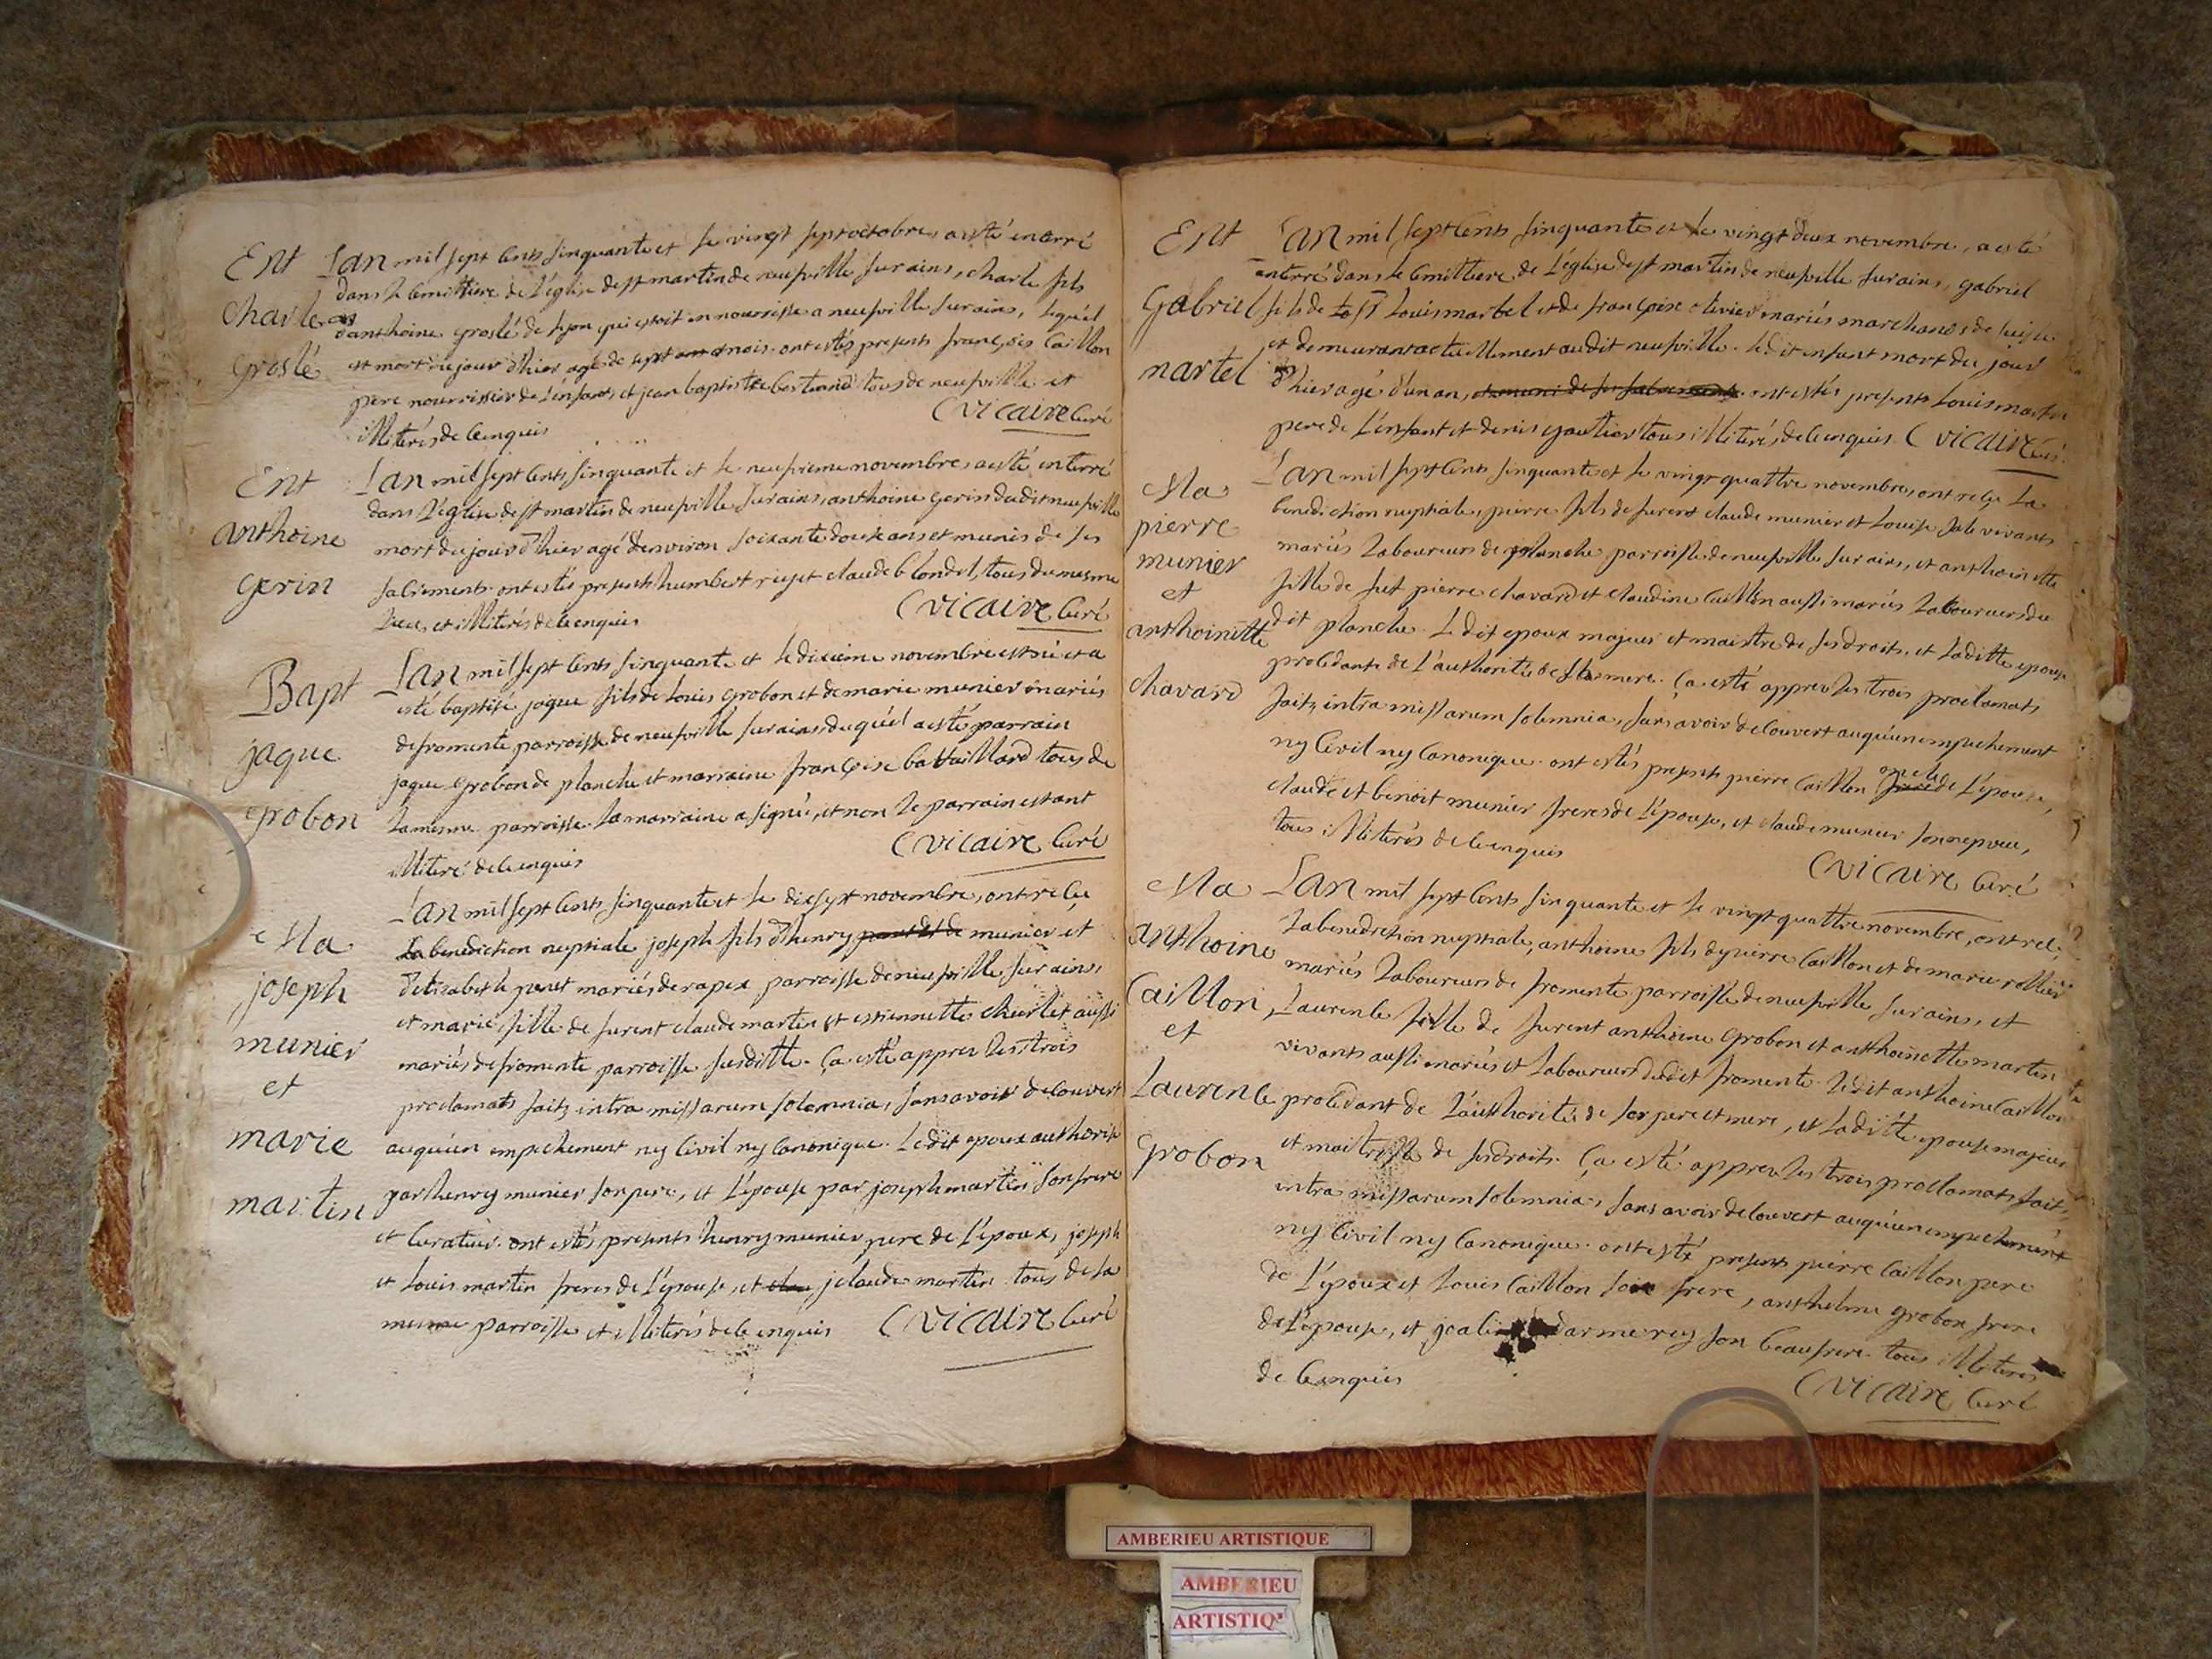 Ent
Charle
groslé
L'an mil sept cents cinquante et le vingt sept octobre, a esté enterré
dans le cimittiere de l'église de st martin de neufville sur ains, charle fils
d'anthoine groslé de lyon qui estoit en nourrisse a neufville sur ains, lequél
est mort du jour d'hier agé de sept mois. ont estés presents françois Caillon
pere nourrissier de l'énfant, et jean baptiste tous de neufville et
illiterés de ce enquis
C vicaire Curé
Ent
anthoine
gerin
L'an mil sept cents cinquante et le neufvieme novembre, a esté enterré
dans l'église de st martin de neufville sur ains, anthoine gerin dudit neufville
mort du jour d'hier agé d'environ soixante douze ans et munis de ses
sacrements. ont estés presents humbert et claude blondel, tous du mesme
lieu, et illiterés de ce enquis
C vicaire Curé
Bapt
jaque
grobon
L'an mil sept cents cinquante et le dixieme novembre est né et a
esté baptisé jaque fils de louis grobon et de marie munier mariés
de fromente parroisse de neufville sur ains, duquél a esté parrain
jaque grobon de planche et marraine françoise battaillard tous de
la mesme parroisse. la marraine a signé, et non le parrain estant
illiteré de ce enquis
C vicaire Curé
Ma
joseph
munier
et
marie
martin
L'an mil sept cents cinquante et le dix sept novembre, ont reçu
la benediction nuptiale joseph fils d'henry munier et
d'elisabeth mariés de rapex parroisse de neufville sur ains,
et marie fille de furent claude martin et estiennette aussi
mariés de fromente parroisse susditte. Ça esté apprez les trois
proclamats faitz intra missarum solemnia, sans avoir decouvert
auquéun empechement ny Civil ny Canonique. Ledit epoux authorisé
par henry munier son pere, et l'épouse par joseph martin son frere
et curateur. ont estés presents henry munier pere de l'époux, joseph
et louis martin freres de l'épouse, et claude martin tous de la
mesme parroisse et illiterés de ce enquis C vicaire Curé
Ent
Gabriel
martel
L'an mil sept cents cinquante et le vingt deux novembre, a esté
enterré dans le cimittiere de l'église de st martin de neufville sur ains, gabriel
fils de louis martel et de françoise olivier mariés marchands de
et demeurant actuellement audit neufville. ledit enfant mort du jour
d'hier agé d'un an, ont estés presents louis martel
pere de l'énfant et denis gautier tous illiterés de ce enquis. C vicaire Curé
Ma
pierre
munier
et
anthoinette
chavard
L'an mil sept cents cinquante et le vingt quattre novembre, ont reçu la
benediction nuptiale, pierre fils de furent claude munier et louise vivants
mariés laboureurs de planche parroisse de neufville sur ains, et anthoinette
fille de fut pierre chavard et claudine Caillon aussi mariés laboureurs du
dit planche. Ledit epoux majeur et maistre de ses droits, et laditte epouse
procedante de l'authorité de sa mere. Ça esté apprez les trois proclamats
faitz intra missarum solemnia, sans avoir decouvert auquéun empechement
ny Civil ny Canonique. ont estés presents pierre Caillon oncle de l'épouse,
claude et benoit munier freres de l'épouse, et claude munier son nepveu,
tous illiterés de ce enquis
C vicaire Curé
Ma
anthoine
Caillon
et
Laurence
grobon
L'an mil sept cents cinquante et le vingt quattre novembre, ont reçu
la benediction nuptiale, anthoine fils de pierre Caillon et de marie rollier
mariés laboureurs de fromente parroisse de neufville sur ains, et
Laurence fille de furent anthoine grobon et anthoinette martin
vivants aussi mariés et laboureurs dudit fromente. ledit anthoine Caillon
procedant de l'authorité de ses pere et mere, et laditte epouse majeure
et maitresse de ses droits. Ça esté apprez les trois proclamats faitz
intra missarum solemnia, sans avoir decouvert auquéun empechement
ny Civil ny Canonique. ont esté presents pierre Caillon pere
de l'époux et louis Caillon son frere, anthelme grobon frere
de l'épouse, et son beaufrere. tous illiterés
de ce enquis
C vicaire Curé
AMBERIEU ARTISTIQUE
AMBERIEU
ARTISTIQ